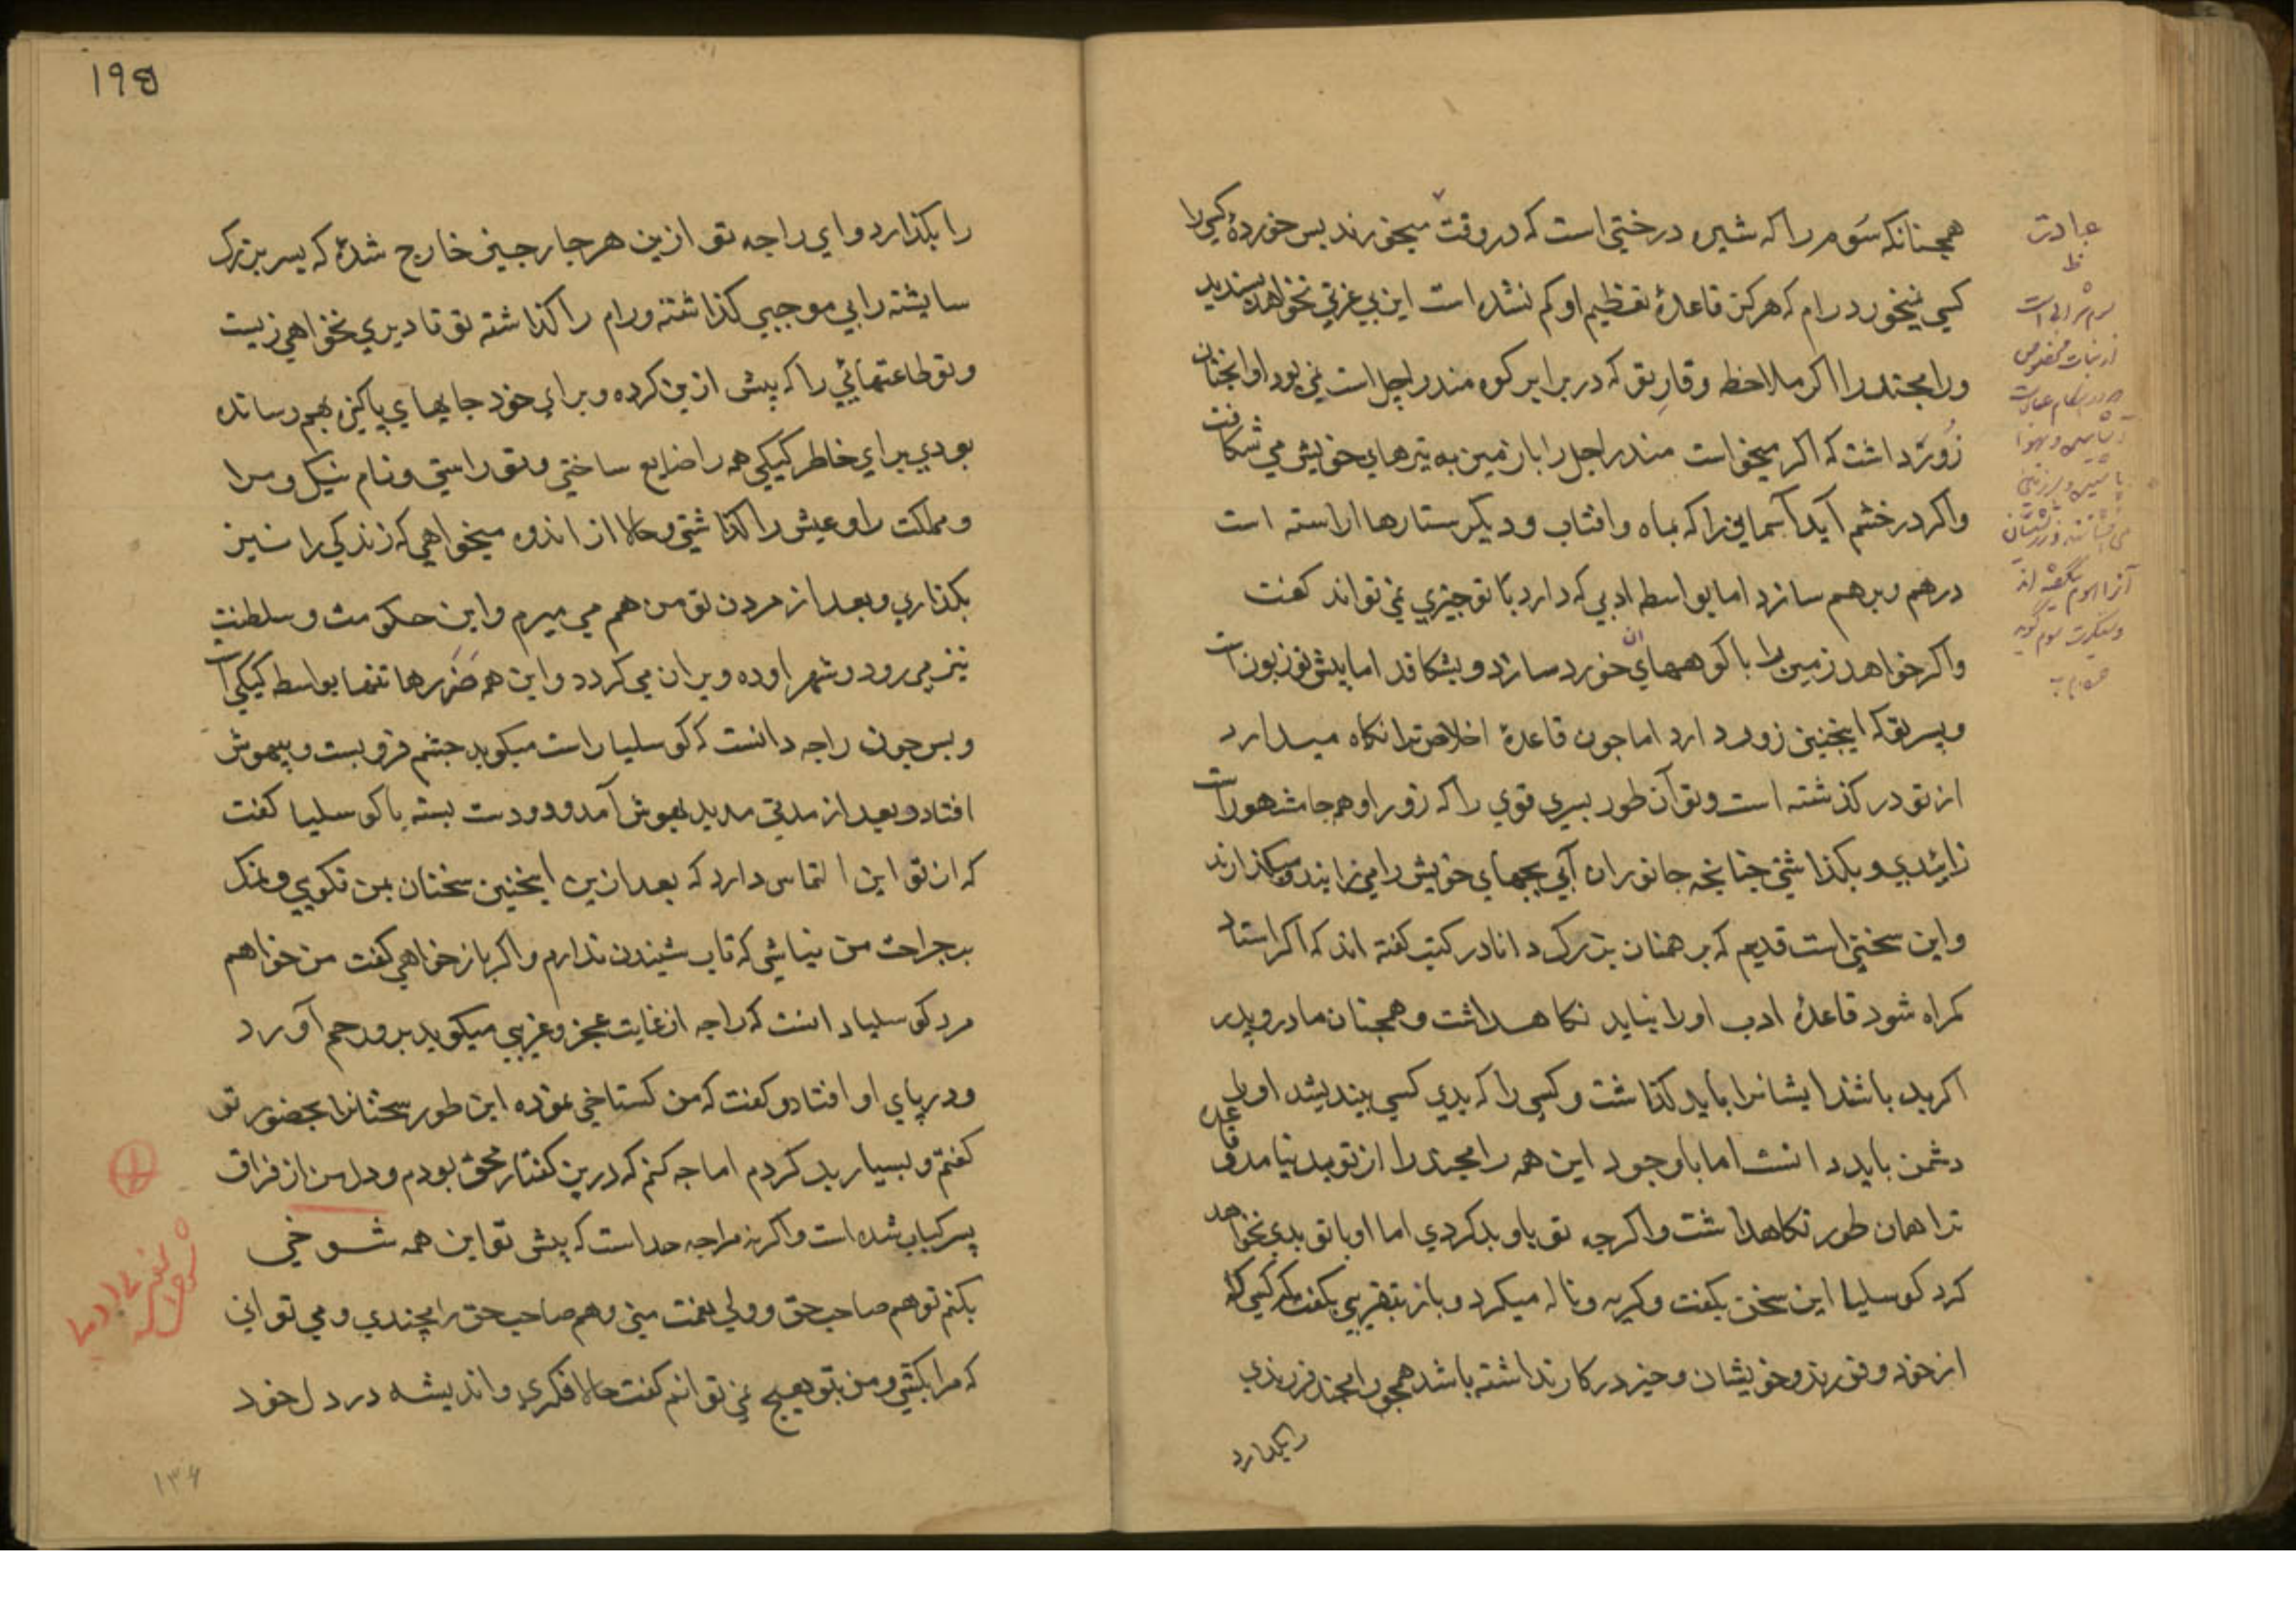 همچنانکه سَوم را که شیره درختی است که در وقت میخورند پس خوردهٔ کسی را
کسی نمیخورد رام که هرکز قاعدهٔ تعظیم او کم نشده است این بی عزتی نخواهد پسندید
ورامچندر را اکر ملاحظ وقارِ تو که در برابر کوه مندراچل است نمی بود او انچنان
زُورَ داشت که اکر میخواست مندراجل را با زمین به تیرهای خویش می شکافت
واکر در خشم آید آسمانی را که بماه وافتاب ودیکر ستارها اراسته است
درهم وبرهم سازد اما بواسطه ادبی که دارد با تو چیزی نمی تواند کفت
واکر خواهد زمین را با کوههای ان خورد سازد وبشکافد اما پیش تو زبون است
وپسر تو که اینچنین زور دارد اما چون قاعدهٔ اخلاص ترا نکاه میدارد
از تو در کذشته است وتو آن طور پسری قوی را که زور او همه جا مشهور است
زائیدی وبکذاشتی چنانچه جانوران آبی بچهای خویش را می زایند ومیکذارند
واین سخنی است قدیم که برهمنان بزرک دانا در کتب کفته اند که اکر استاد
کمراه شود قاعدهٔ ادب او را نباید نکاهداشت وهمچنان مادر وپدر
اکر بد باشند ایشانرا باید کذاشت وکسی را که بدی کسی بیندیشد او را
دشمن باید دانست اما با وجود این همه رامچندر را از تو بد نیامد وقاعده
ترا همان طور نکاهداشت واکرچه تو باو بد کردی اما او با تو بدی نخواهد
کرد کوسلیا این سخن بکفت وکریه وناله میکرد وباز بتقریبی بکفت که کسی که
از خود وفرزند وخویشان وچیز در کار نداشته باشد همچو رامچندر فرزندی
را بکذارد
عبادت
ظ
۱۹۵
را بکذارد وای راجه تو ازین هر چار چیز خارج شدهٔ که پسر بزرک
شایسته را بی موجبی کذاشته ورام را کذاشته تو تا دیری نخواهی زیست
وتو طاعتهائی را که پیش ازین کرده وبرای خود جایهای پاکیزه بهم رسانده
بودی برای خاطر کیکی همه را ضایع ساختی وتو راستی ونام نیک ومرا
ومملکت را وعیش را کذاشتی وحالا از اندوه میخواهی که زندکی را نیز
بکذاری وبعد از مردن تو من هم می میرم واین حکومت وسلطنت
نیز می رود وشهر اوده ویران می کردد واین همه ضَرَرها تنها بواسطه کیکی است
وبس چون راجه دانست که کوسلیا راست میکوید چشم فرو بست وبیهوش
افتاد وبعد از مدتی مدید بهوش آمد ودو دست بسته با کوسلیا کفت
که از تو این التماس دارد که بعد ازین اینچنین سخنان بمن نکویی ونمک
بر جراحت من نپاشی که تاب شنیدن ندارم واکر باز خواهی کفت من خواهم
مرد کوسلیا دانست که راجه از غایت عجز وغریبی میکوید برو رحم آورد
ودر پای او افتاد وکفت که من کستاخی نموده این طور سخنانرا بحضور تو
کفتم وبسیار بد کردم اما چه کنم که درین کفتار محق بودم ودل من از فراق
پسر کباب شده است واکر نه مرا چه حد است که پیش تو این همه شوخی
بکنم تو هم صاحب حق وولی نعمت منی وهم صاحب حق رامچندری ومی توانی
که مرا بکشی ومن بتو هیچ نمی توانم کفت حالا فکری واندیشه در دل خود
۱۳۶